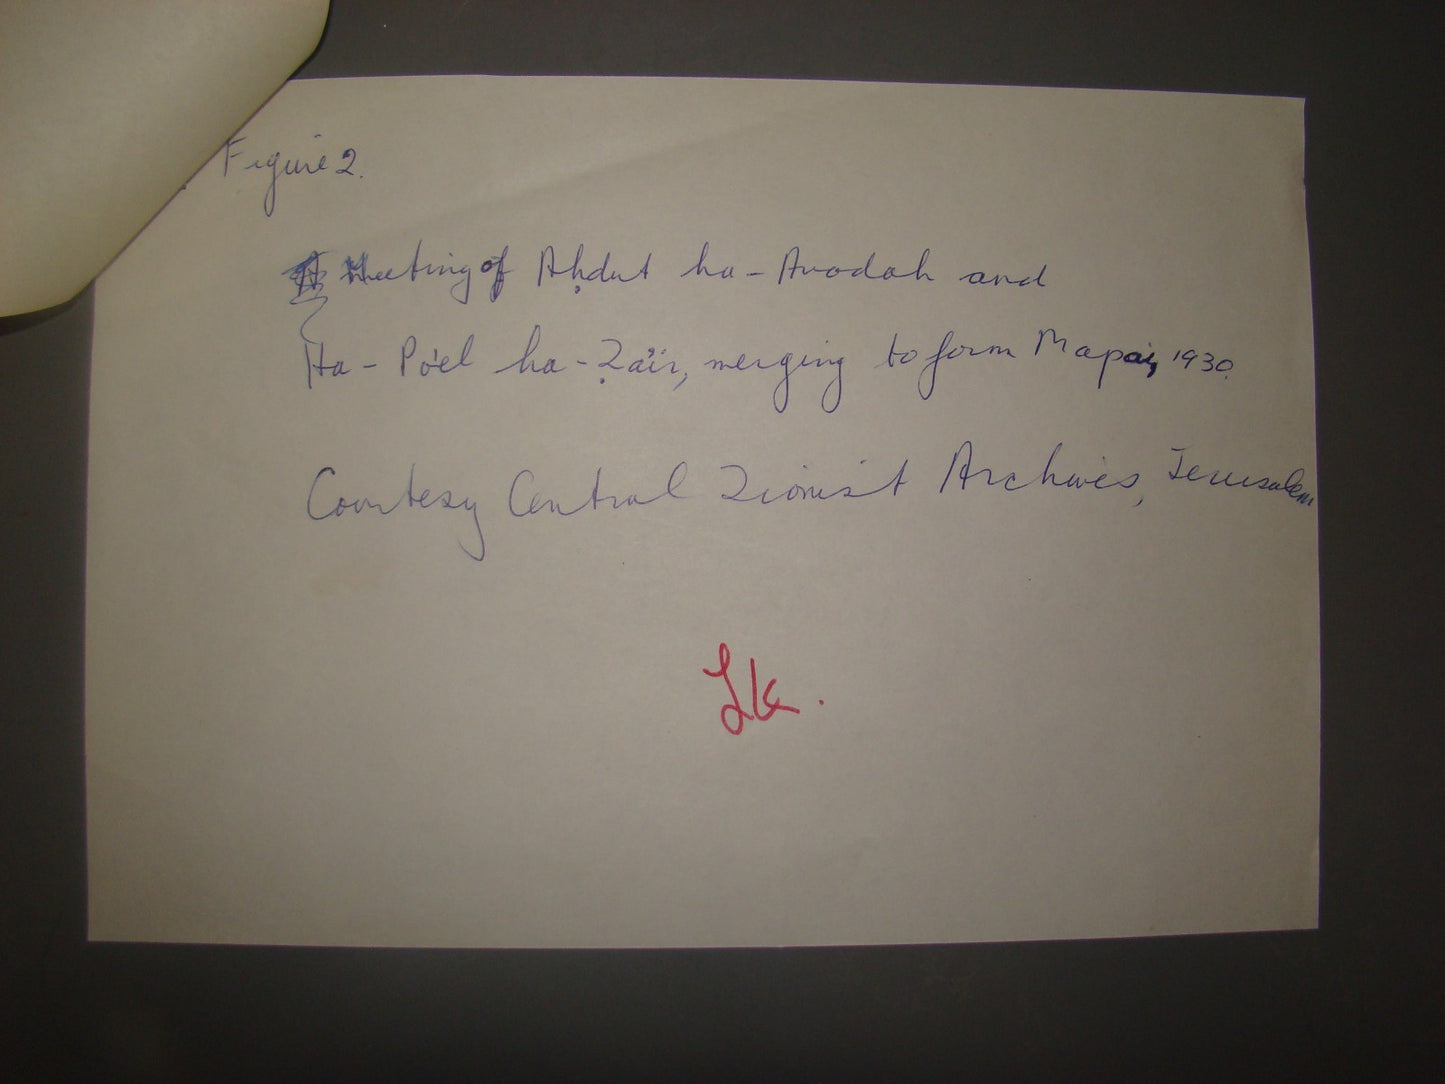 Figure 2.
Meeting of Aḥdut ha-Avodah and
Ha-Po'el ha-Ẓa'ir, merging to form Mapai, 1930.
Courtesy Central Zionist Archives, Jerusalem